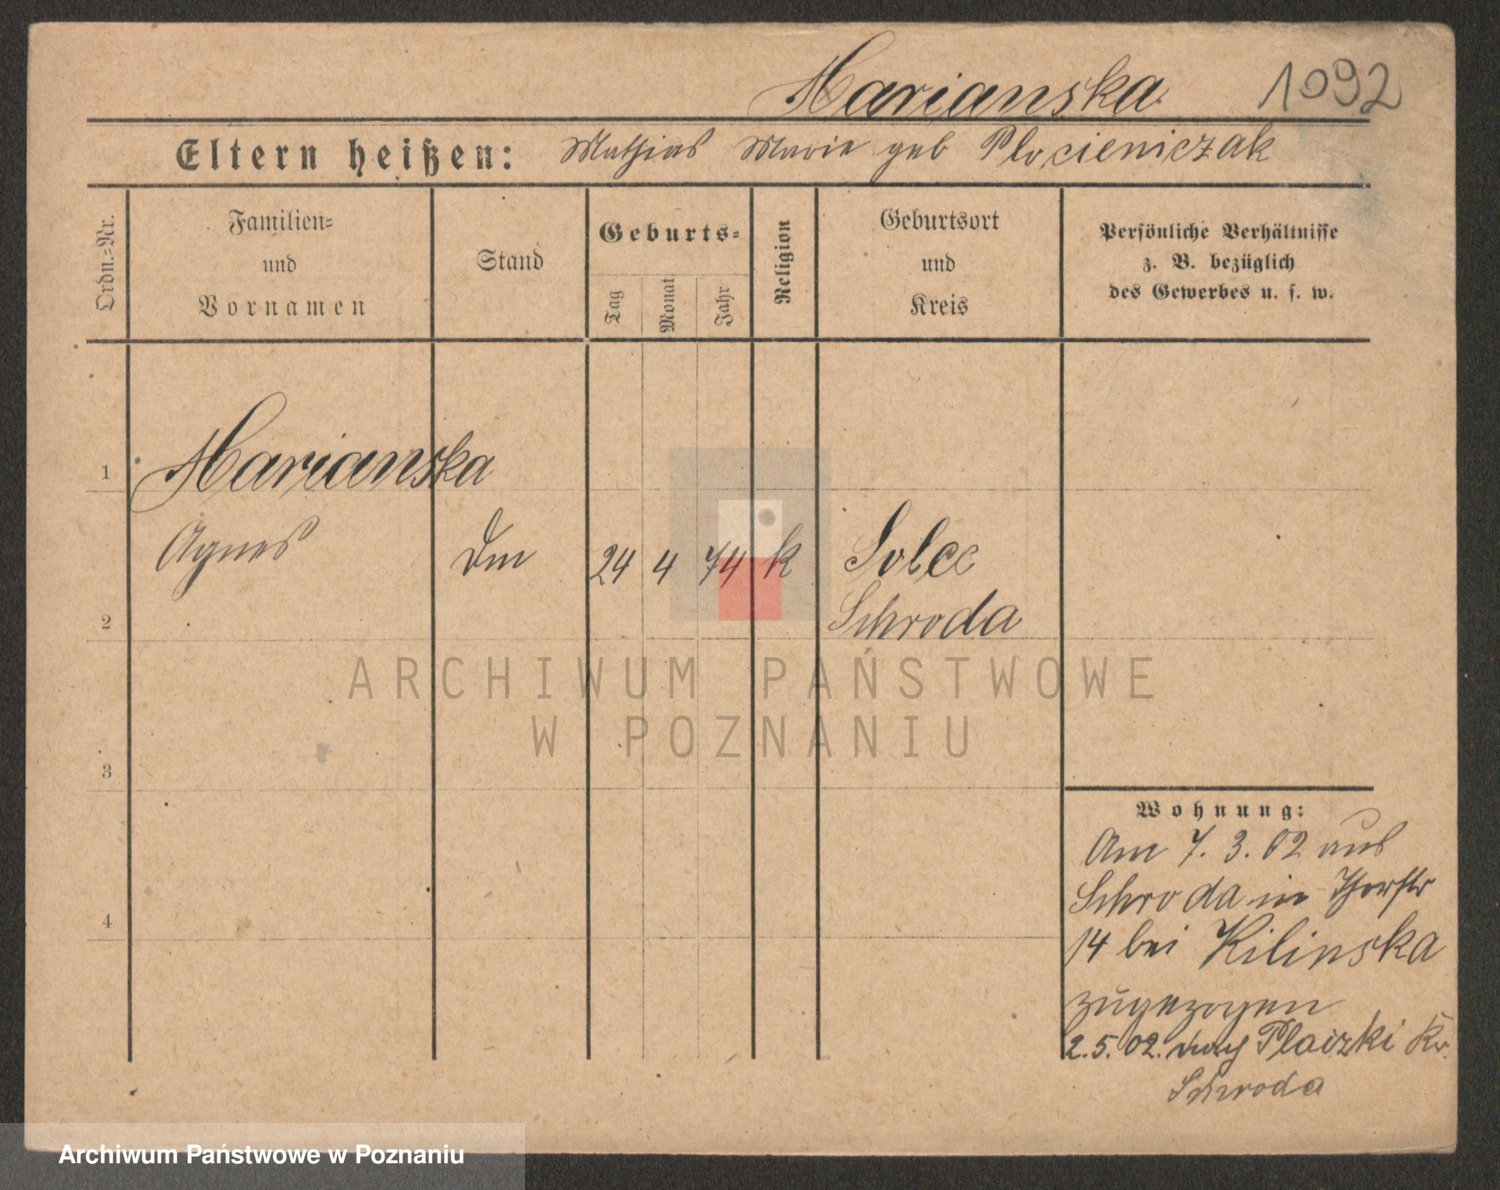 Marianska 1092
Eltern heißen: Mathias Marie geb Plocieniczak
Ordn.-Nr.
Familien-
und
Vornamen
Stand
Geburts-
Tag
Monat
Jahr
Religion
Geburtsort
und
Kreis
Persönliche Verhältnisse
z. B. bezüglich
des Gewerbes u. s. w.
1 Marianska
Agnes 24 4 74 k Solec
2 Schroda
3
4
Wohnung:
Am 7. 3. 02 aus
Schroda in Thorstr
14 bei Kilinska
zugezogen
2.5.02. nach Placzki Kr.
Schroda
ARCHIWUM PAŃSTWOWE
W POZNANIU
Archiwum Państwowe w Poznaniu